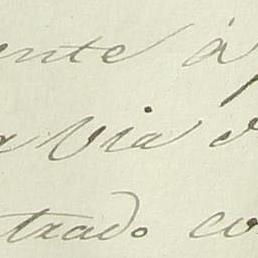 ente á
a Via d
trado co